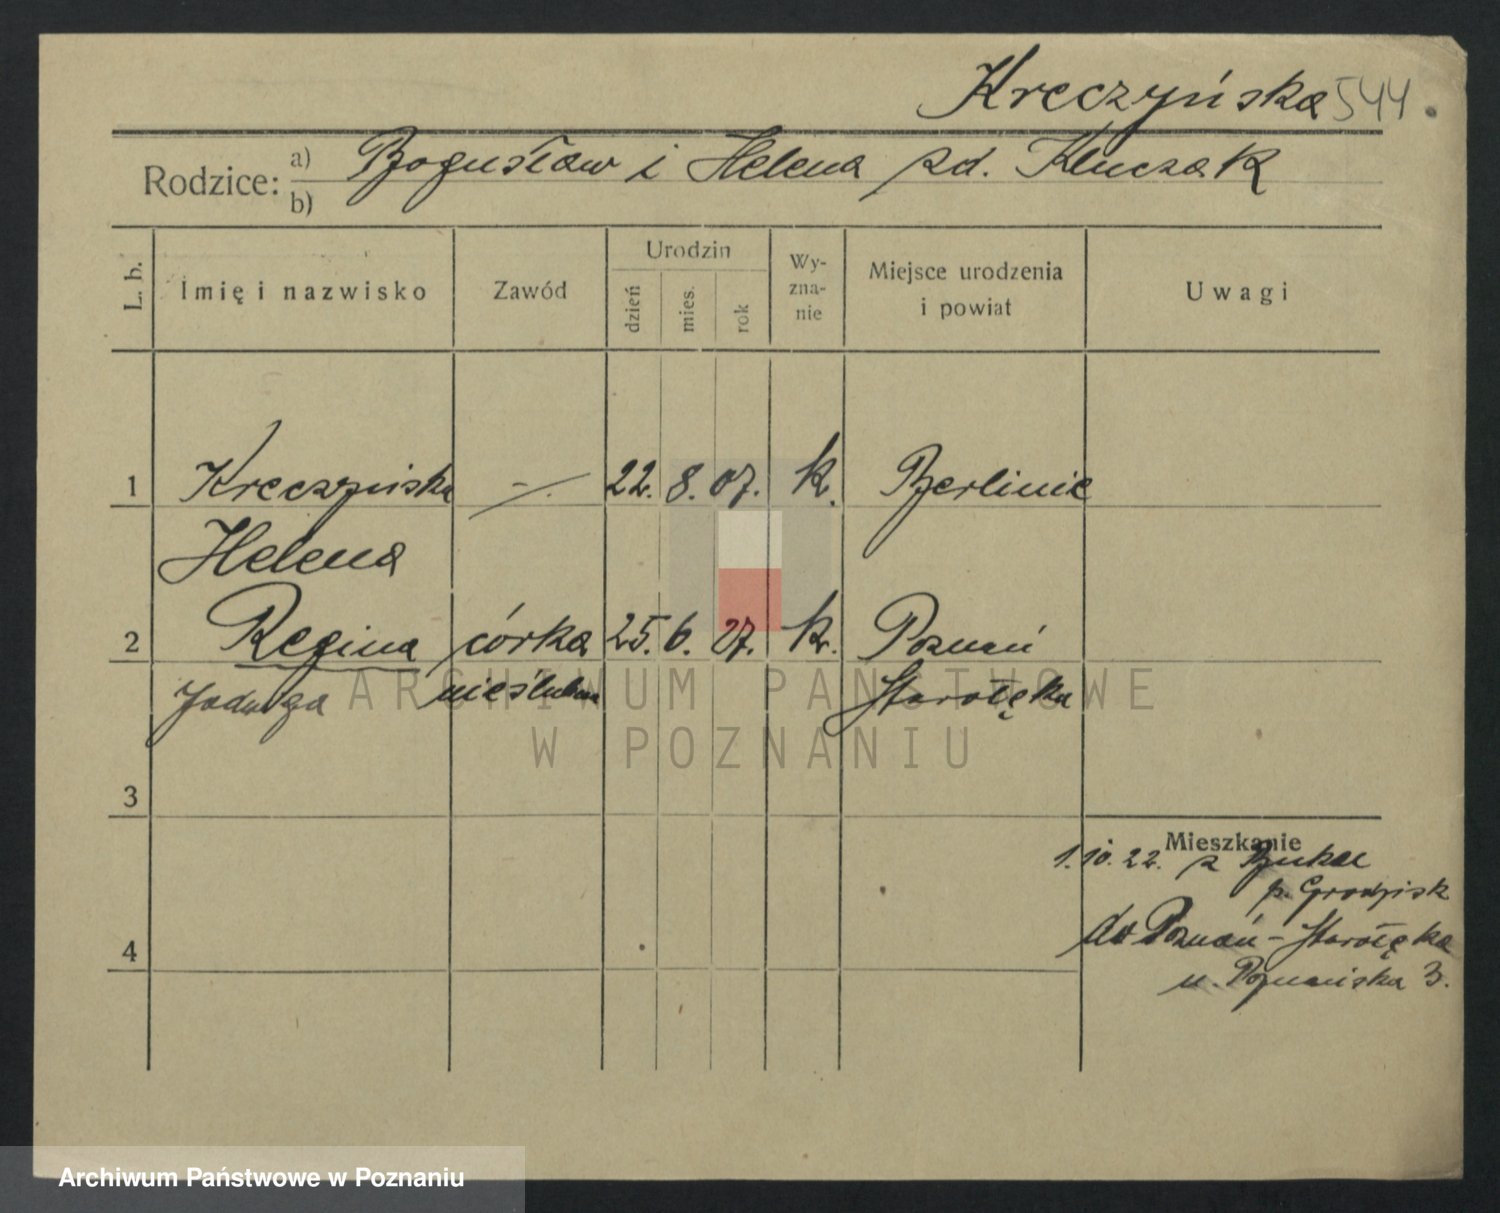 Kreczyńska 544
Rodzice: a) b) Bogusław i Helena zd. Kluczak
L. b. Imię i nazwisko Zawód Urodzin dzień mies. rok Wy-zna-nie Miejsce urodzenia i powiat Uwagi
1 Kreczyńska -/. 22. 8. 07. k. Berlinie
Helena
2 Regina córka 25. 6. 27. k. Poznań
Jadwiga nieślubna Starołęka
ARCHIWUM PAŃSTWOWE
W POZNANIU
3
Mieszkanie
1.10.22. z Buku
p. Grodzisk
4 do Poznań-Starołęka
u. Poznańska 3.
Archiwum Państwowe w Poznaniu